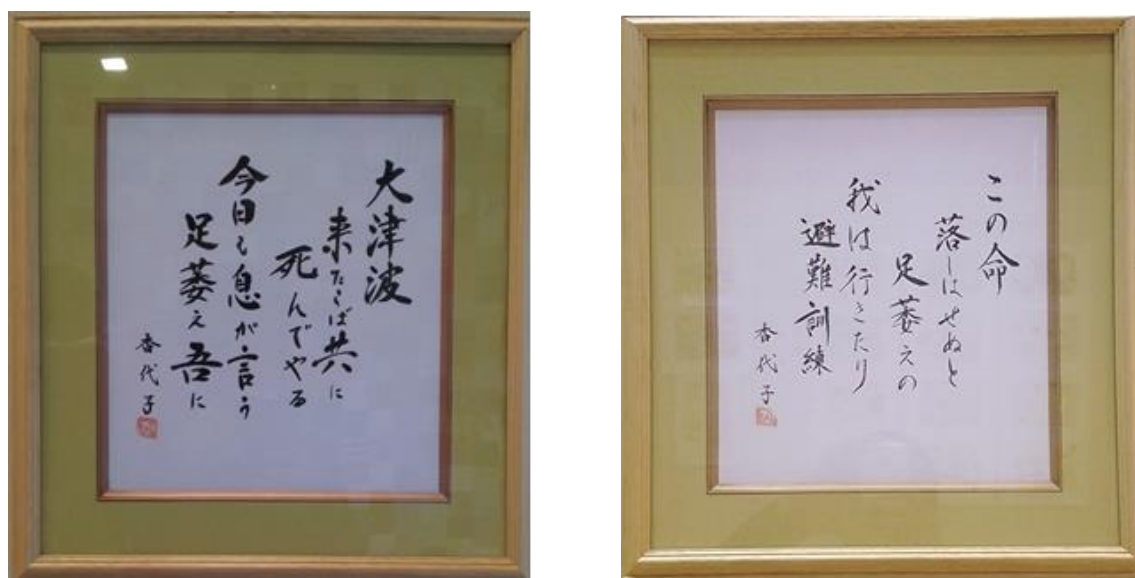 大津波
来たらば共に
死んでやる
今日も息が言う
足萎え吾に
香代子
この命
落しはせぬと
足萎えの
我は行きたり
避難訓練
香代子